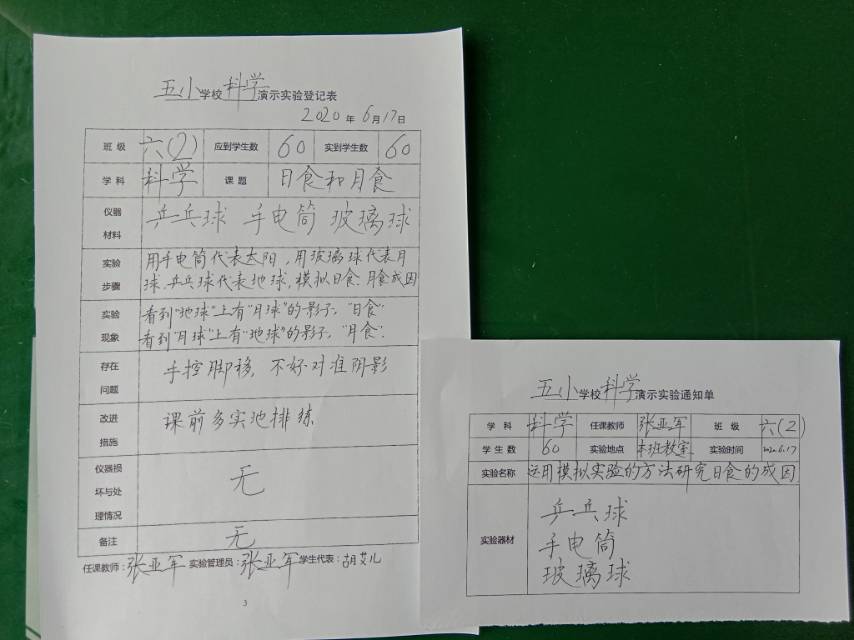 五小学校科学演示实验登记表
2020年6月17日
班级 六(2) 应到学生数 60 实到学生数 60
学科 科学 课题 日食和月食
仪器材料 乒乓球 手电筒 玻璃球
实验步骤 用手电筒代表太阳,用玻璃球代表月
球,乒乓球代表地球,模拟日食、月食成因
实验现象 看到"地球"上有"月球"的影子,"日食".
看到"月球"上有"地球"的影子,"月食".
存在问题 手控脚移,不好对准阴影
改进措施 课前多实地排练
仪器损坏与处理情况 无
备注 无
任课教师:张亚军 实验管理员:张亚军 学生代表:胡艾儿
3
五小学校科学演示实验通知单
学科 科学 任课教师 张亚军 班级 六(2)
学生数 60 实验地点 本班教室 实验时间 2020.6.17
实验名称 运用模拟实验的方法研究日食的成因
实验器材 乒乓球
手电筒
玻璃球